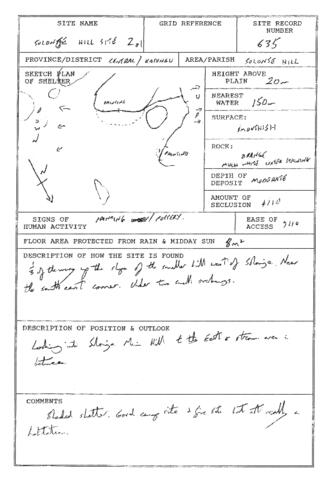 SITE NAME
GRID REFERENCE
SITE RECORD NUMBER
SOLONGE HILL SITE 2.1
635
PROVINCE/DISTRICT CENTRAL / KATANGU
AREA/PARISH SOLONGE HILL
SKETCH PLAN OF SHELTER
PAINTING
PAINTING
HEIGHT ABOVE PLAIN 20m
NEAREST WATER 150m
SURFACE:
ROCK:
ORANGE
MUCH WHITE UNDER
DEPTH OF DEPOSIT MODERATE
AMOUNT OF SECLUSION 4/10
SIGNS OF HUMAN ACTIVITY PAINTING / POTTERY.
EASE OF ACCESS 9/10
FLOOR AREA PROTECTED FROM RAIN & MIDDAY SUN 8m²
DESCRIPTION OF HOW THE SITE IS FOUND
1/3 of the way up the slope of the smaller hill west of Solonge. Near
the south east corner. Under two small overhangs.
DESCRIPTION OF POSITION & OUTLOOK
Looking into Solonge Main Hill to the East & stream area in
between
COMMENTS
Shaded shelter. Good camp site & fire site but not really a
habitation.